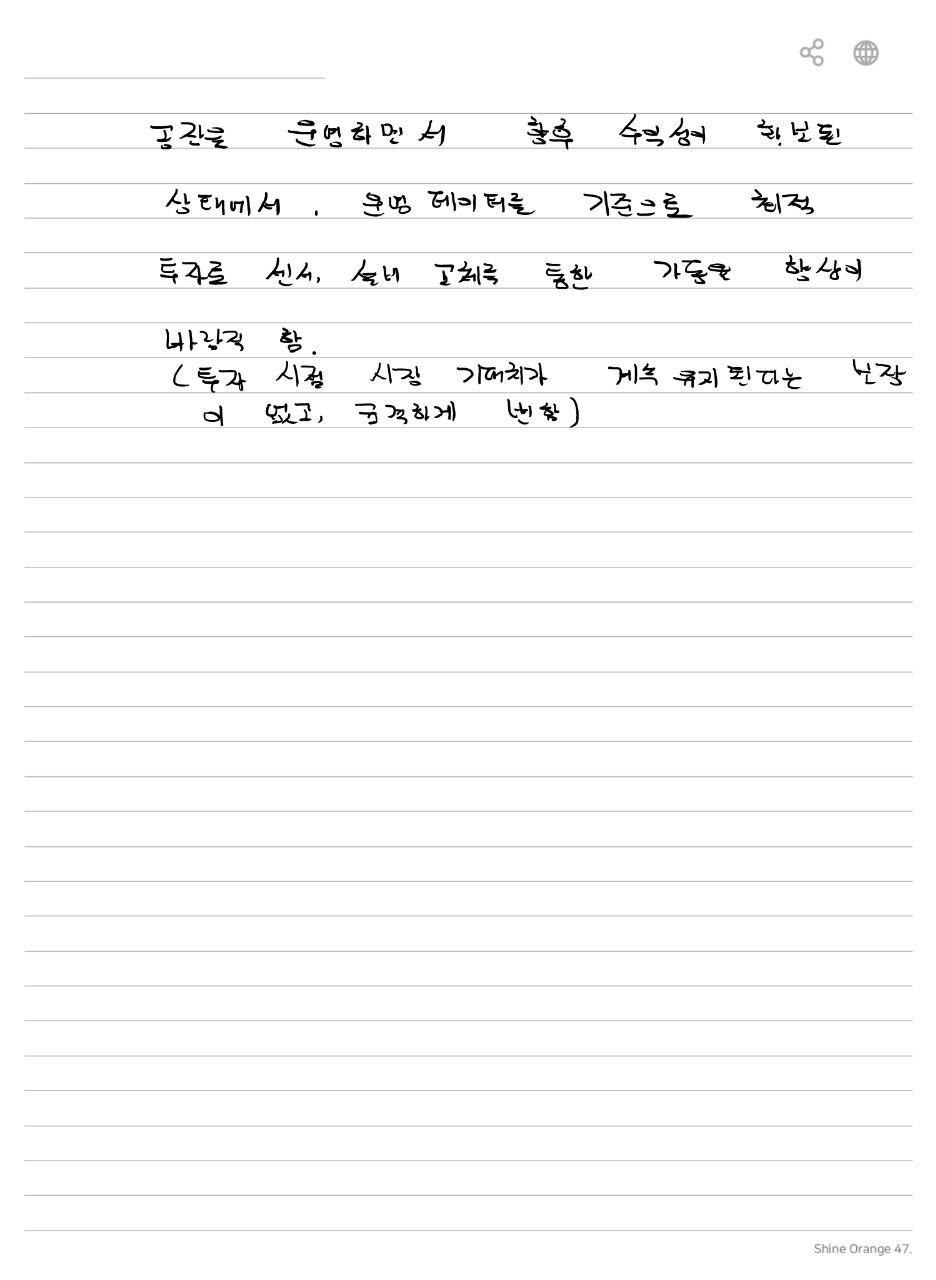 공간을 운영하면서 향후 수익성이 확보된
상태에서, 운영 데이터를 기준으로 최적
투자로 센서, 설비 교체를 통한 가동율 향상이
바람직 함.
(투자 시점 시장 기대치가 계속 유지된다는 보장
이 없고, 급격하게 변함)
Shine Orange 47.